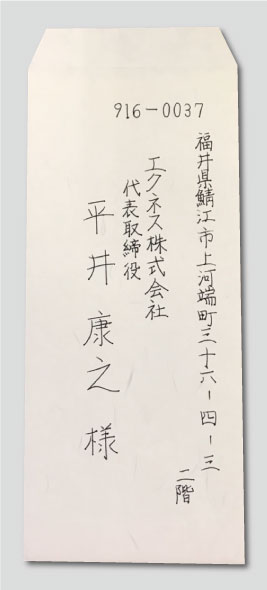 916-0037
福井県鯖江市上河端町三十六-四-三
二階
エクネス株式会社
代表取締役
平井康之様